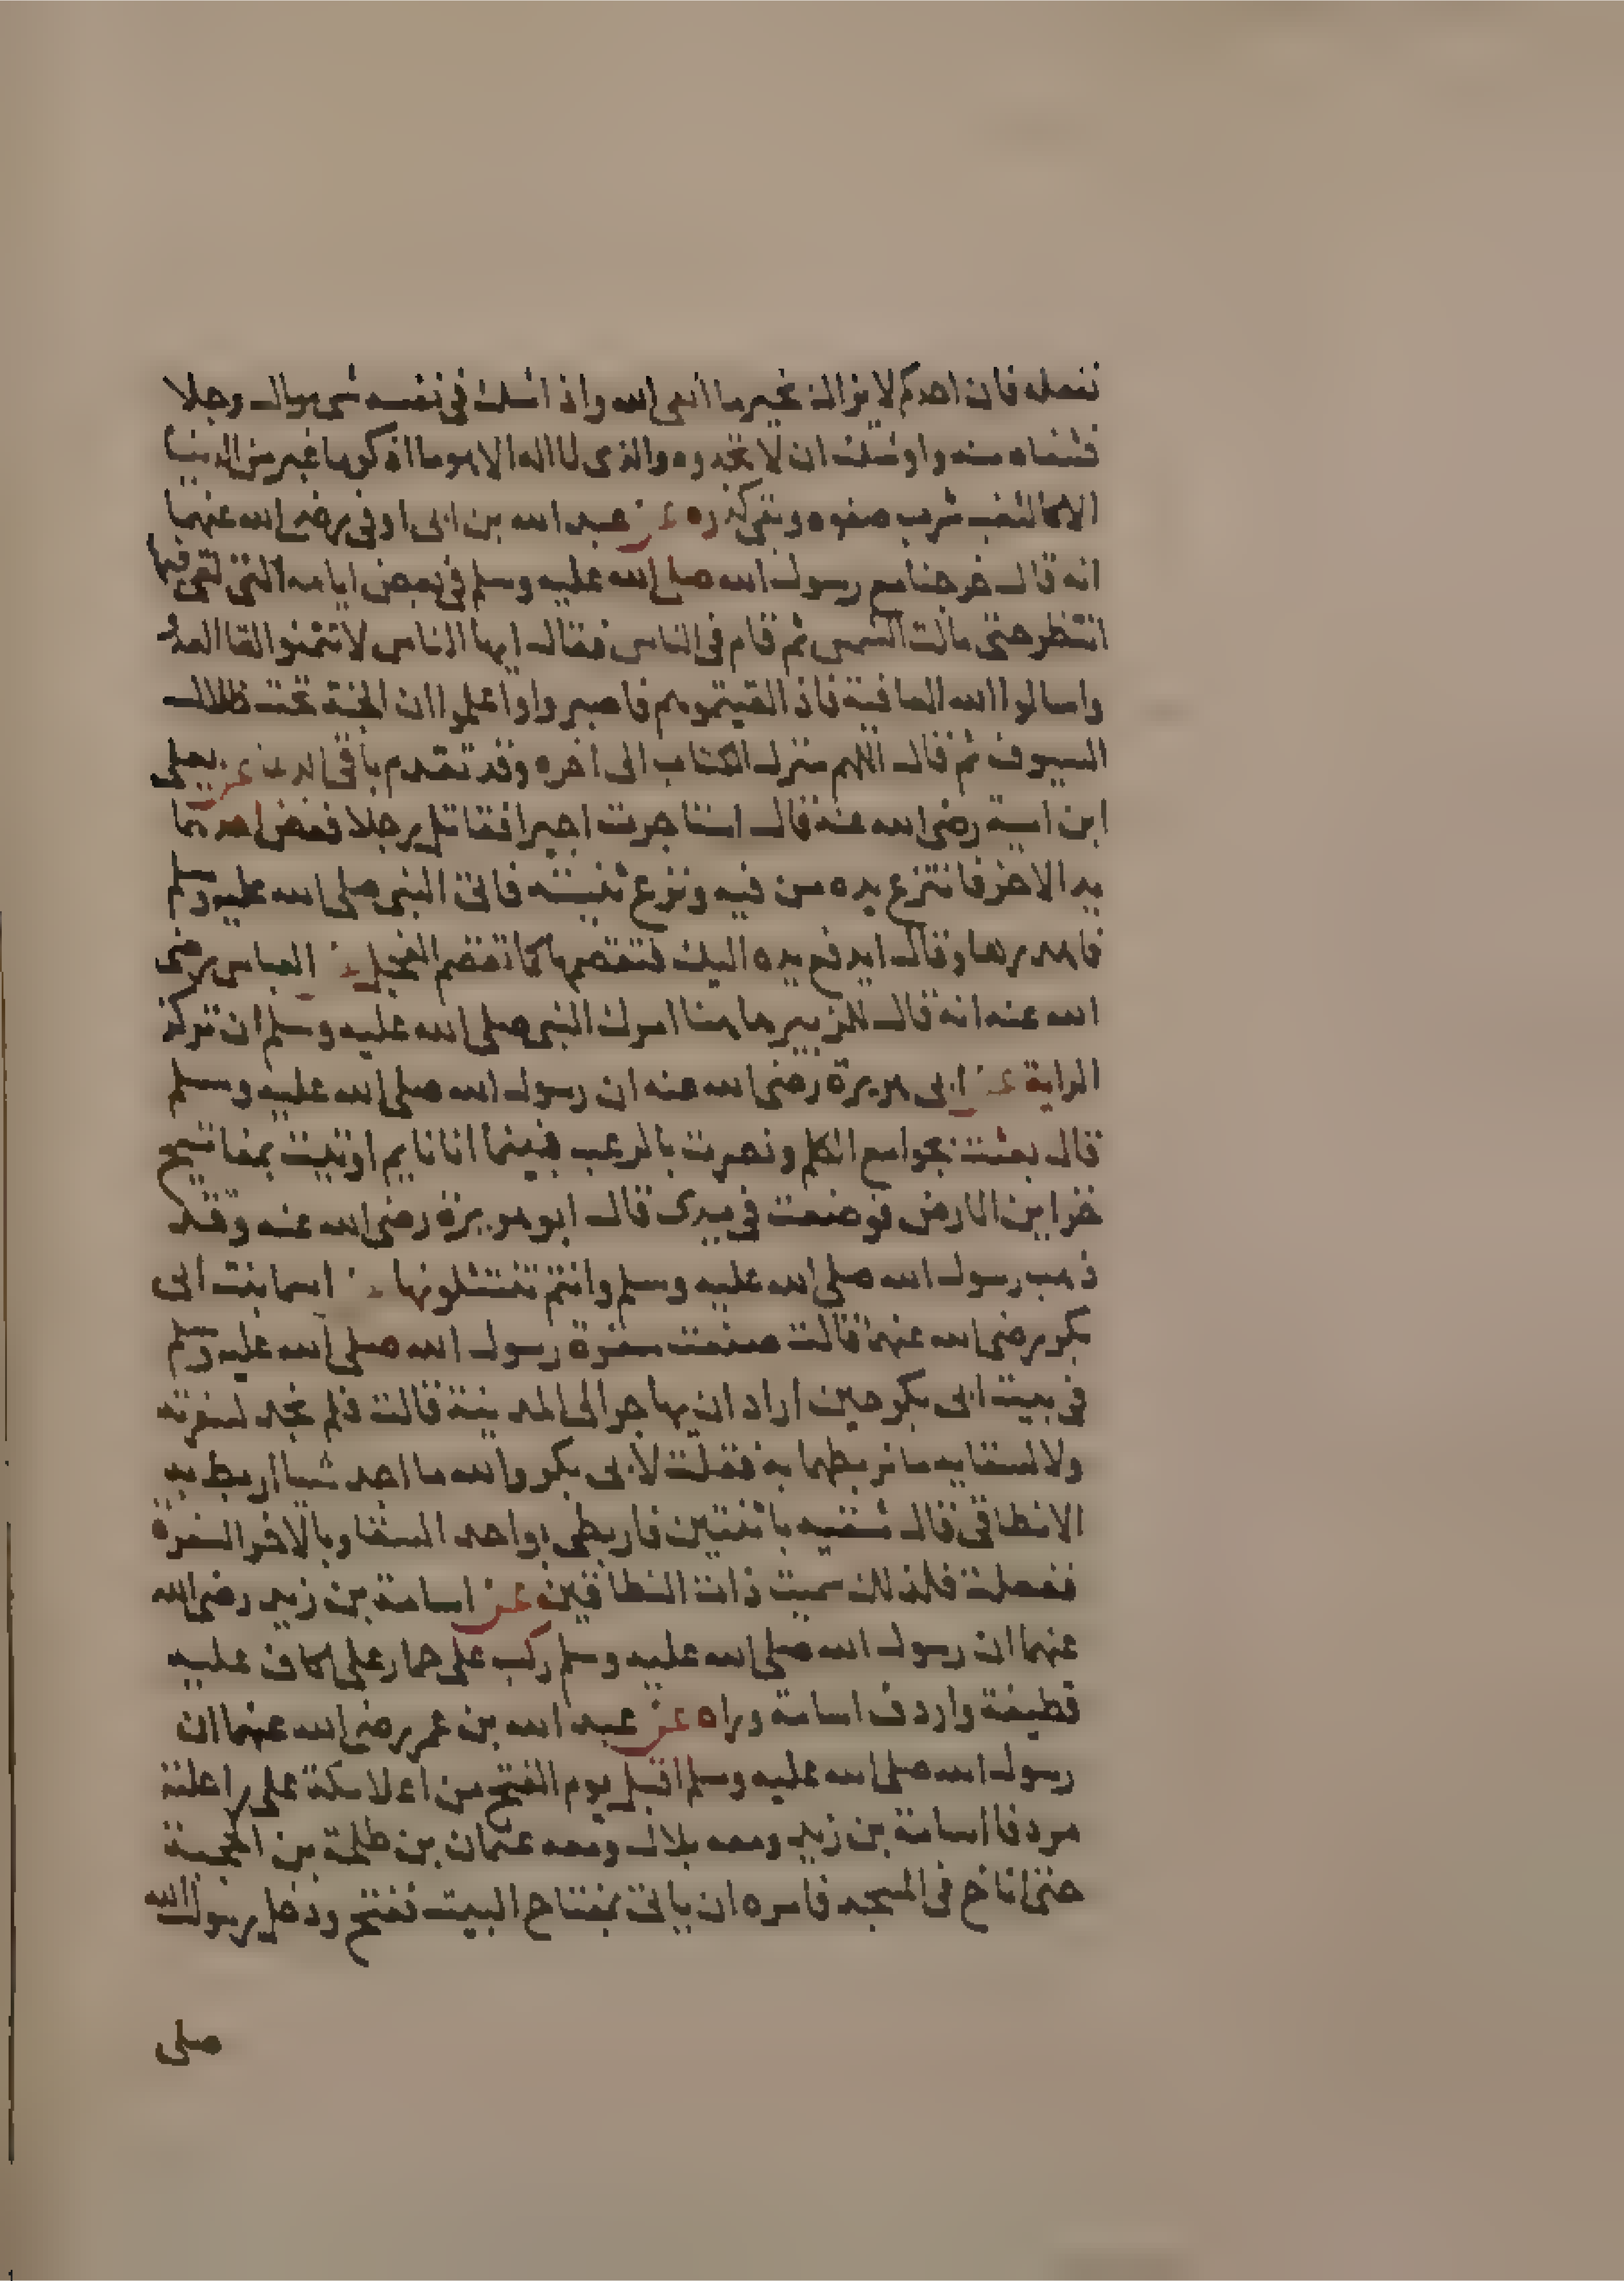 نفعله فان احدكم لا يزال بخير ما اتقى الله واذا شك في نفسه شي سال رجلا
فشفاه منه واوشك ان لا تجدوه والذي لا اله الا هو ما اذكر ما غبر من الدنيا
الا كالثغب شرب صفوه وبقي كدره عن عبد الله بن ابي اوفى رضي الله عنهما
انه قال خرجنا مع رسول الله صلى الله عليه وسلم في بعض ايامه التي لقي فيها
انتظر حتى مالت الشمس ثم قام في الناس فقال ايها الناس لا تتمنوا لقا العدو
واسالوا الله العافية فاذا لقيتموهم فاصبروا واعلموا ان الجنة تحت ظلال
السيوف ثم قال اللهم منزل الكتاب الى اخره وقد تقدم باقي الدعا عن يعلى
ابن امية رضي الله عنه قال استاجرت اجيرا فقاتل رجلا فعض احدهما
يد الاخر فانتزع يده من فيه ونزع ثنيته فاتى النبي صلى الله عليه وسلم
فاهدرها وقال ايدفع يده اليك فتقضمها كما تقضم الفحل عن العباس رضي
الله عنه انه قال للزبير هاهنا امرك النبي صلى الله عليه وسلم ان تركز
الراية عن ابي هريرة رضي الله عنه ان رسول الله صلى الله عليه وسلم
قال بعثت بجوامع الكلم ونصرت بالرعب فبينما انا نايم اوتيت بمفاتيح
خزاين الارض فوضعت في يدي قال ابو هريرة رضي الله عنه وقد
ذهب رسول الله صلى الله عليه وسلم وانتم تنتثلونها عن اسما بنت ابي
بكر رضي الله عنهما قالت صنعت سفرة رسول الله صلى الله عليه وسلم
في بيت ابي بكر حين اراد ان يهاجر الى المدينة قالت فلم نجد لسفرته
ولا لسقايه ما نربطهما به فقلت لابي بكر والله ما اجد شيا اربط به
الا نطاقي قال فشقيه باثنتين فاربطي بواحد السقا وبالاخر السفرة
ففعلت فلذلك سميت ذات النطاقين عن اسامة بن زيد رضي الله
عنهما ان رسول الله صلى الله عليه وسلم ركب على حمار على اكاف عليه
قطيفة واردف اسامة وراه عن عبد الله بن عمر رضي الله عنهما ان
رسول الله صلى الله عليه وسلم اقبل يوم الفتح من اعلا مكة على راحلته
مردفا اسامة بن زيد ومعه بلال ومعه عثمان بن طلحة من الحجبة
حتى اناخ في المسجد فامره ان ياتي بمفتاح البيت ففتح ودخل رسول الله
صلى